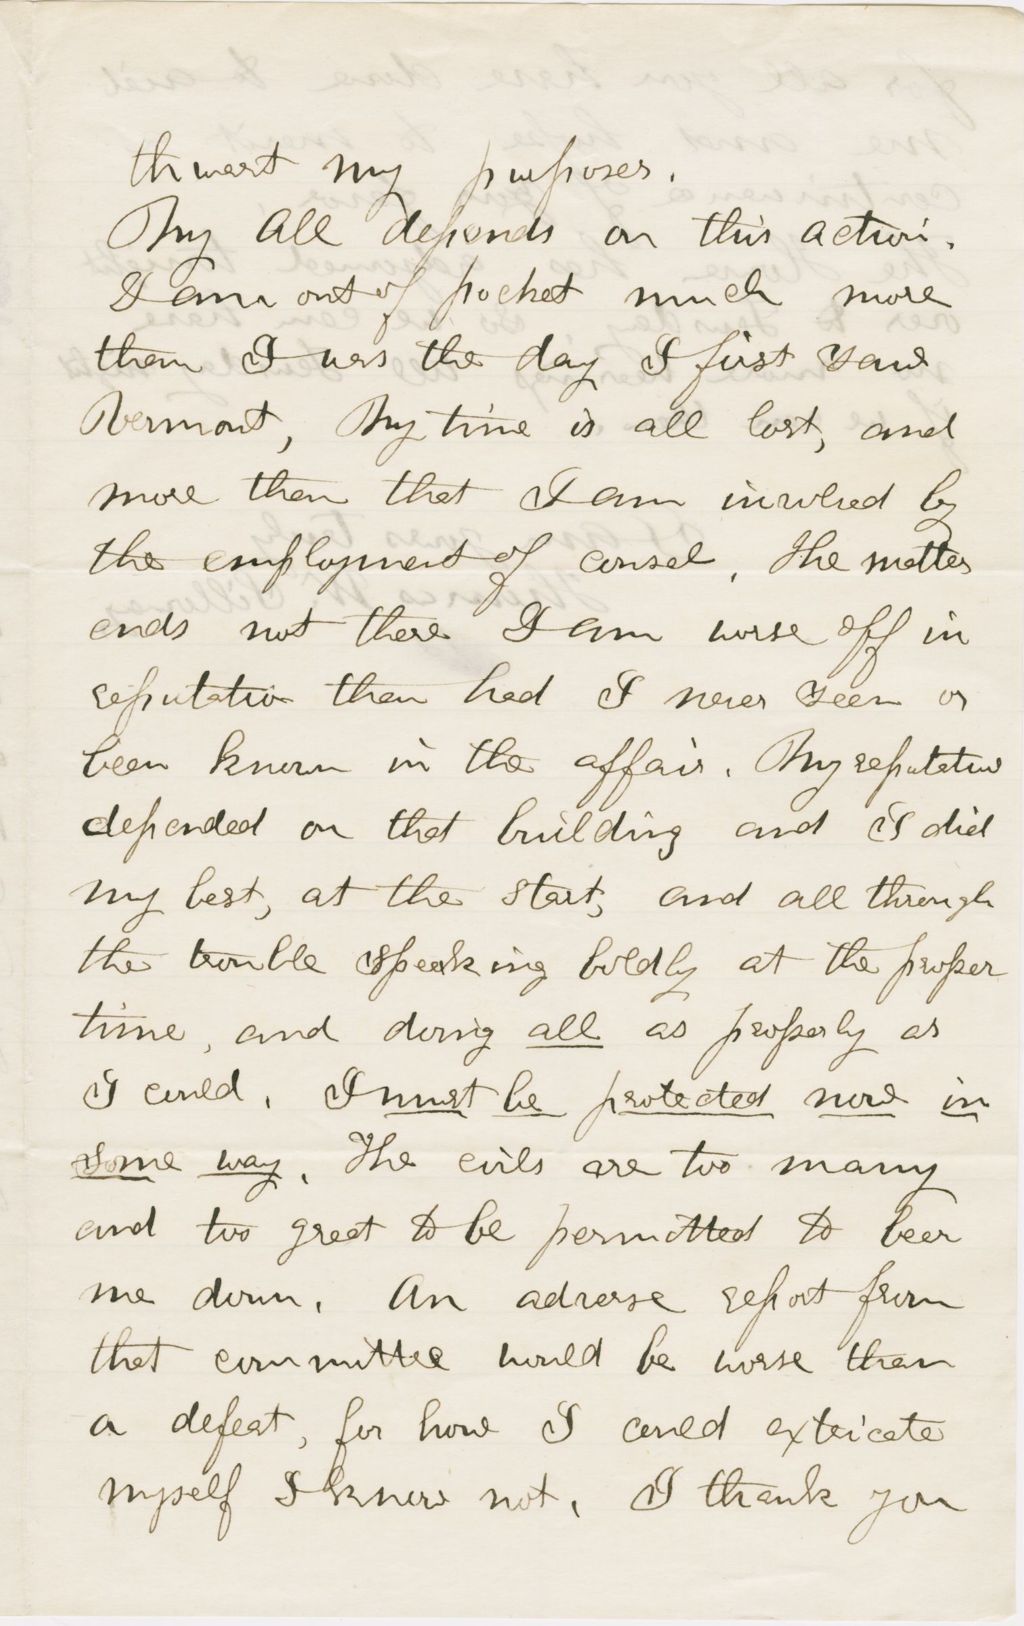 thwart my purposes.
My all depends on this action.
I am out of pocket much more
than I was the day I first saw
Vermont, My time is all lost, and
more than that I am involved by
the employment of counsel. The matter
ends not there I am worse off in
reputation than had I never seen or
been known in the affair. My reputation
depended on that building and I did
my best, at the start, and all through
the trouble speaking boldly at the proper
time, and doing all as properly as
I could. I must be protected now in
some way. The evils are too many
and too great to be permitted to bear
me down. An adverse report from
that committee would be worse than
a defeat, for how I could extricate
myself I know not. I thank you